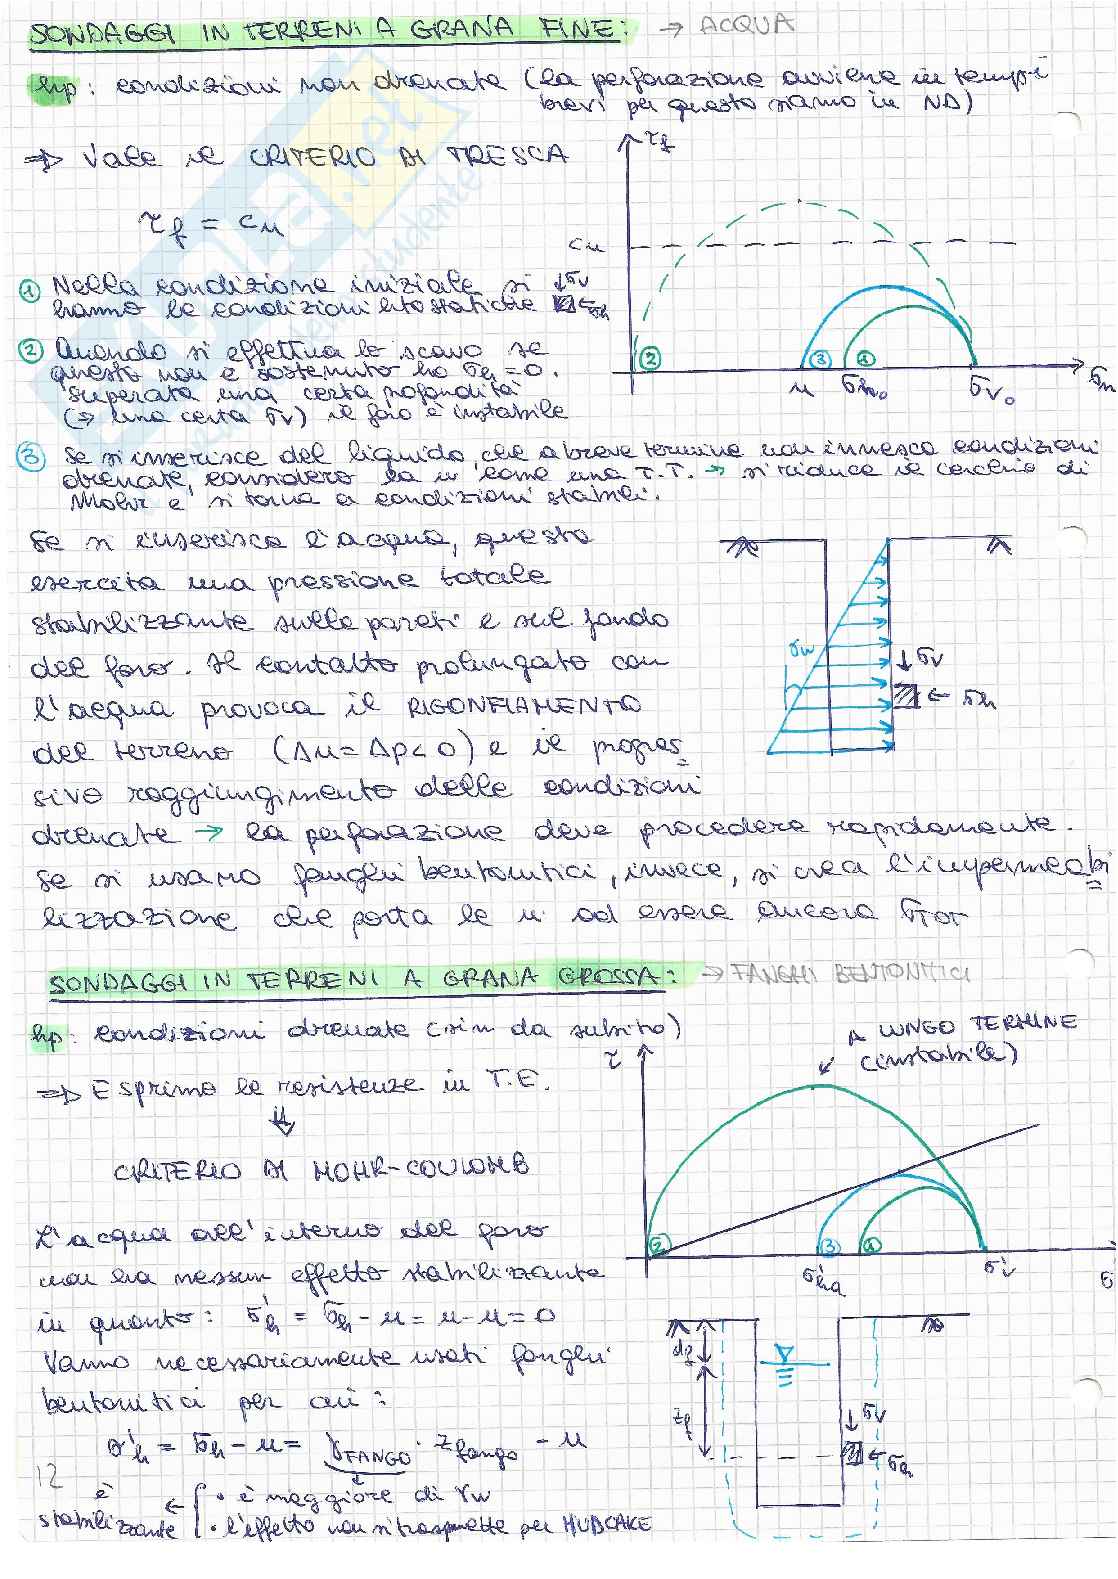 SONDAGGI IN TERRENI A GRANA FINE: → ACQUA
hp: condizioni non drenate (la perforazione avviene in tempi
brevi per questo siamo in ND)
⇒ Vale il CRITERIO DI TRESCA
τf = cu
τf
cu
① Nella condizione iniziale si
hanno le condizioni litostatiche
σv
σh
② Quando si effettua lo scavo se
questo non è sostenuto ho σh = 0.
Superata una certa profondità
(⇒ una certa σv) il foro è instabile
② ③ ①
u σh₀ σv₀ σn
③ Se si inserisce del liquido, che a breve termine non innesca condizioni
drenate, considero la u come una T.T. → si riduce il cerchio di
Mohr e si torna a condizioni stabili.
Se si inserisca l'acqua, questa
esercita una pressione totale
stabilizzante sulle pareti e sul fondo
del foro. Il contatto prolungato con
l'acqua provoca il RIGONFIAMENTO
del terreno (Δu = Δp < 0) e il progres
sivo raggiungimento delle condizioni
drenate → la perforazione deve procedere rapidamente.
Se si usano fanghi bentonitici, invece, si crea l'impermeabi
lizzazione che porta le u ad essere ancora σTOT
γw
σv
σh
SONDAGGI IN TERRENI A GRANA GROSSA: → FANGHI BENTONITICI
hp: condizioni drenate (sin da subito)
⇒ Esprimo le resistenze in T.E.
⇓
CRITERIO DI MOHR-COULOMB
τ
A LUNGO TERMINE
(instabile)
② ③ ①
σ'ha σ'v σ'
L'acqua all'interno del foro
non ha nessun effetto stabilizzante
in quanto: σ'h = σh - u = u - u = 0
Vanno necessariamente usati fanghi
bentonitici per cui:
σ'h = σh - u = γFANGO · zfango - u
è
stabilizzante ←
• è maggiore di γw
• l'effetto non si trasmette per MUDCAKE
df
zf
σv
σh
12